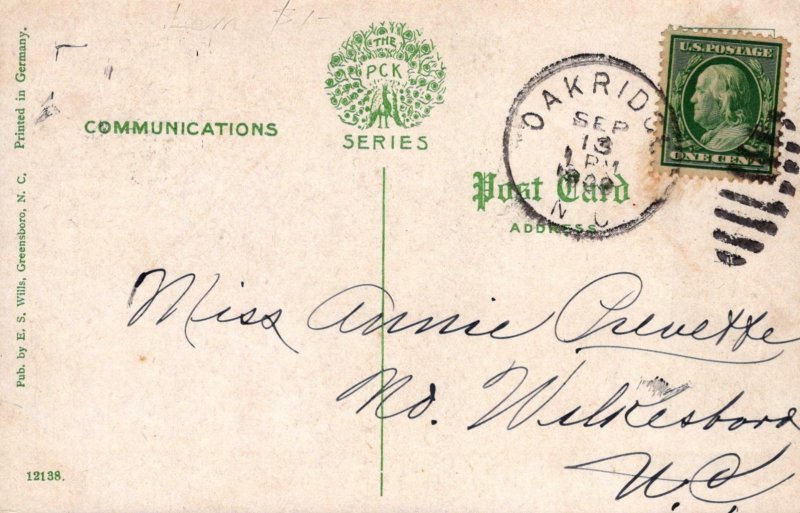 Pub. by E. S. Wills, Greensboro, N. C. Printed in Germany.
THE
PCK
SERIES
COMMUNICATIONS
OAKRIDGE
SEP
13
1 PM
N C
U.S. POSTAGE
ONE CENT
Post Card
ADDRESS
Miss Annie Prevette
No. Wilkesboro
N.C.
12138.